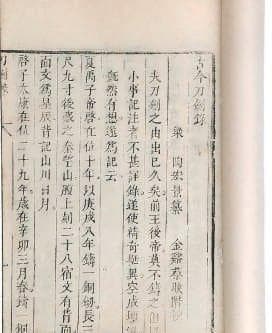 古今刀劍錄
梁 陶弘景纂 金谿蔡
夫刀劍之由出已久矣前王後帝莫不鑄之但以
小事記注者不甚詳錄遂使精奇挺異空成堙沒
慨然有想遂爲記云
夏禹子帝啓在位十年以庚戌八年鑄一銅劍長三
尺九寸後藏之秦望山腹上刻二十八宿文有背面
面文爲星辰背記山川日月
啓子太康在位二十九年歲在辛卯三月春鑄一銅
刀劍錄